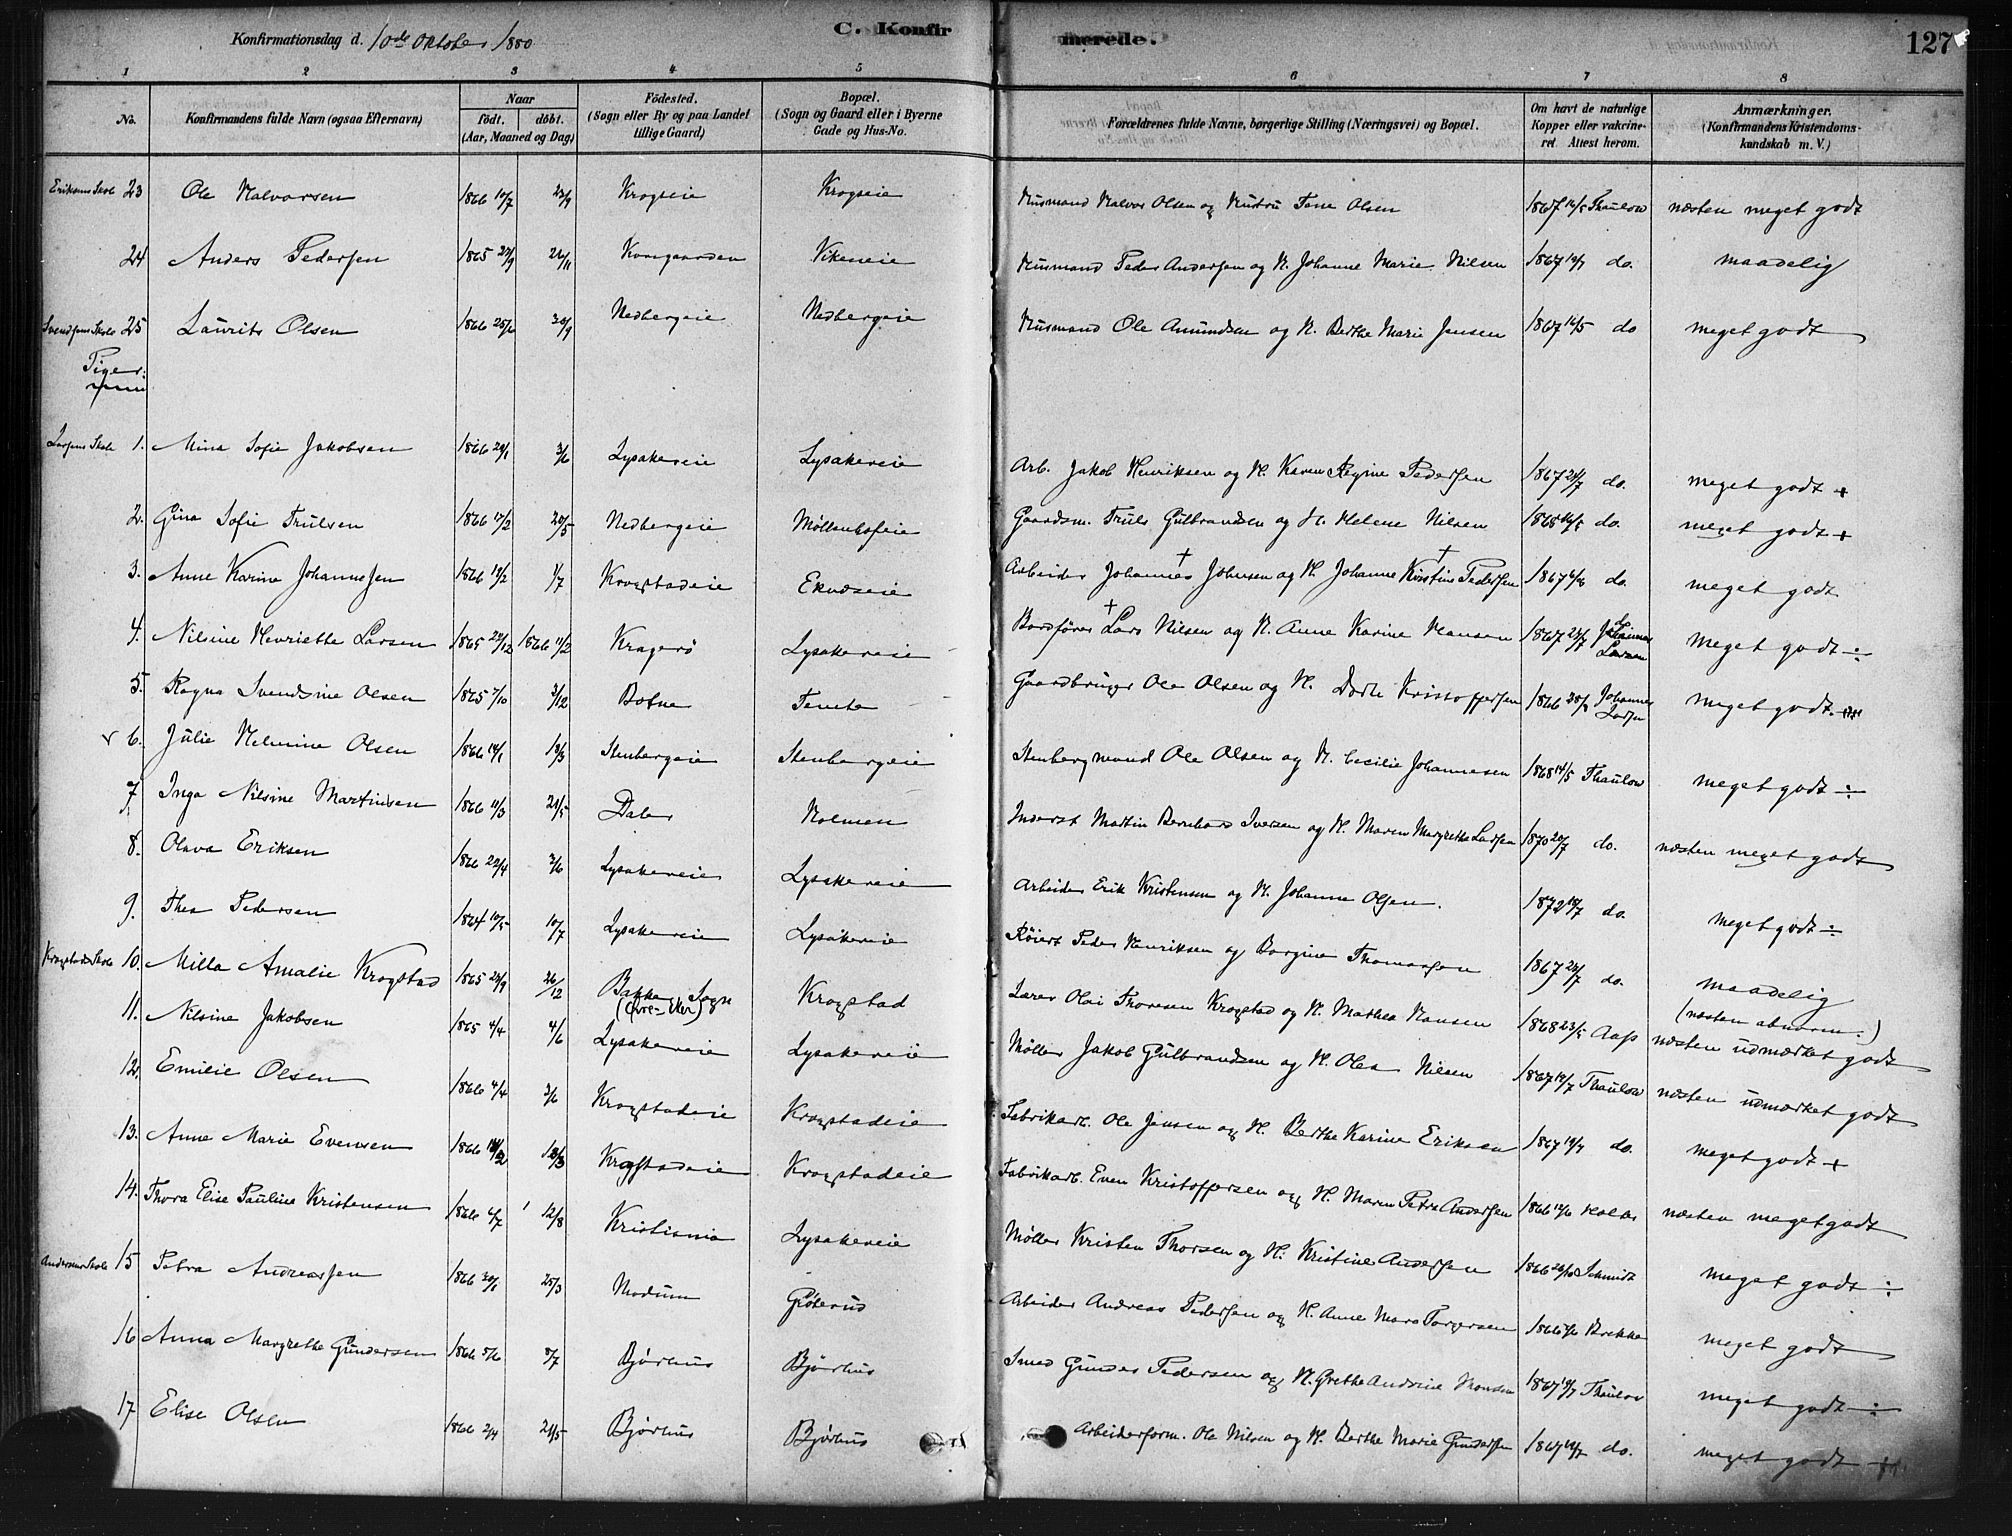 Konfirmationsdag d. 10de Oktober 1880
C. Konfirmerede.
127
1 2 3 4 5 6 7 8
No. Konfirmandens fulde Navn (ogsaa Efternavn) Naar født. døbt. (Aar, Maaned og Dag) Fødested. (Sogn eller By og paa Landet tillige Gaard) Bopæl. (Sogn og Gaard eller i Byerne Gade og Hus-No. Forældrenes fulde Navne, borgerlige Stilling (Næringsvei) og Bopæl. Om havt de naturlige Kopper eller vakcineret Attest herom. Anmærkninger. (Konfirmandens Kristendomskundskab m. V.)
Eriksens Skole 23 Ole Halvorsen 1866 10/7 23/9 Krogseie Krogseie Husmand Halvor Olsen og Hustru Tene Olsen 1867 Thaulow næsten meget godt
24 Anders Pedersen 1865 27/9 26/11 Vikeneie Husmand Peder Andersen og H. Johanne Marie Nilsen 1867 do. maadelig
Svendsens Skole 25 Laurits Olsen 1866 25/6 30/9 Nedbergeie Nedbergeie Husmand Ole Amundsen og H. Berthe Marie Jensen 1867 16/5 do meget godt
Piger:
Larsens Skole 1. Mina Sofie Jakobsen 1866 29/1 3/6 Lysakereie Lysakereie Arb. Jakob Henriksen og H. Karen Regine Pedersen 1867 do. meget godt +
2. Gina Sofie Trulsen 1866 17/2 20/5 Nedbergeie Møllenhofeie Gaardm. Truls Gulbrandsen og H. Helene Nilsen 1868 do. meget godt +
3. Anne Karine Johannesen 1866 19/2 1/7 Krogstadeie Eknæseie Arbeider Johannes Johnsen og H. Johanne Kirstine Pedersen 1867 do. meget godt
4. Nilsine Henriette Larsen 1865 29/12 1866 11/2 Kragerø Lysakereie Bordfører Lars Nilsen og H. Anne Karine Hansen 1867 Johannes Larsen meget godt ÷
5. Ragna Svendsine Olsen 1865 7/10 3/12 Botne Temte Gaardbruger Ole Olsen og H. Dorte Kristoffersen 1866 Johannes Larsen meget godt
6. Julie Helmine Olsen 1866 14/1 19/3 Stenbergeie Stenbergeie Stenbergmand Ole Olsen og H. Cecilie Johannesen 1868 14/5 Thaulow meget godt ÷
7. Inga Nilsine Martinsen 1866 11/3 21/5 Daler Holmen Inderst Martin Bernhard Iversen og H. Maren Margrethe Larsen 1870 20/7 do. næsten meget godt
8. Olava Eriksen 1866 22/4 3/6 Lysakereie Lysakereie Arbeider Erik Kristensen og H. Johanne Olsen. 1872 18/7 do. meget godt ÷
9. Thea Pedersen 1864 10/5 10/7 Lysakereie Lysakereie Røiert Peder Henriksen og Borgine Thomassen 1867 do. maadelig (næsten abnorm.)
Krogstads Skole 10. Milla Amalie Krogstad 1865 29/9 26/12 Bakke Sogn (Øvre-Eker) Krogstad Lærer Olai Thoresen Krogstad og H. Mathea Hansen 1868 23/5 Aass næsten udmærket godt
11. Nilsine Jakobsen 1865 4/4 4/6 Lysakereie Lysakereie Møller Jakob Gulbrandsen og H. Olea Nilsen 1867 Thaulow næsten udmærket godt
12. Emilie Olsen 1866 4/4 3/6 Krogstadeie Krogstadeie Fabrikarb. Ole Jensen og H. Berthe Karine Eriksen 1867 do. meget godt +
13. Anne Marie Evensen 1866 18/3 Krogstadeie Krogstadeie Fabrikarb. Even Kristoffersen og H. Maren Petra Andersen 1866 næsten meget godt
14. Thora Elise Pauline Kristensen 1866 4/7 12/8 Kristiania Lysakereie Møller Kristen Thorsen og H. Kristine Andersen 1866 Schmidt meget godt ÷
Andersens Skole 15 Petra Andreassen 1866 30/1 25/3 Modum Grøterud Arbeider Andreas Pedersen og H. Anne Mare Torgersen 1866 Brekke meget godt
16 Anna Margrethe Gundersen 1866 5/6 8/7 Bjørhus Bjørhus Smed Gunder Pedersen og H. Grethe Andrine Hansen 1867 Thaulow meget godt ÷
17 Elise Olsen 1866 2/4 21/5 Bjørhus Bjørhus Arbeiderform. Ole Nilsen og H. Berthe Marie Gundersen 1867 do. meget godt